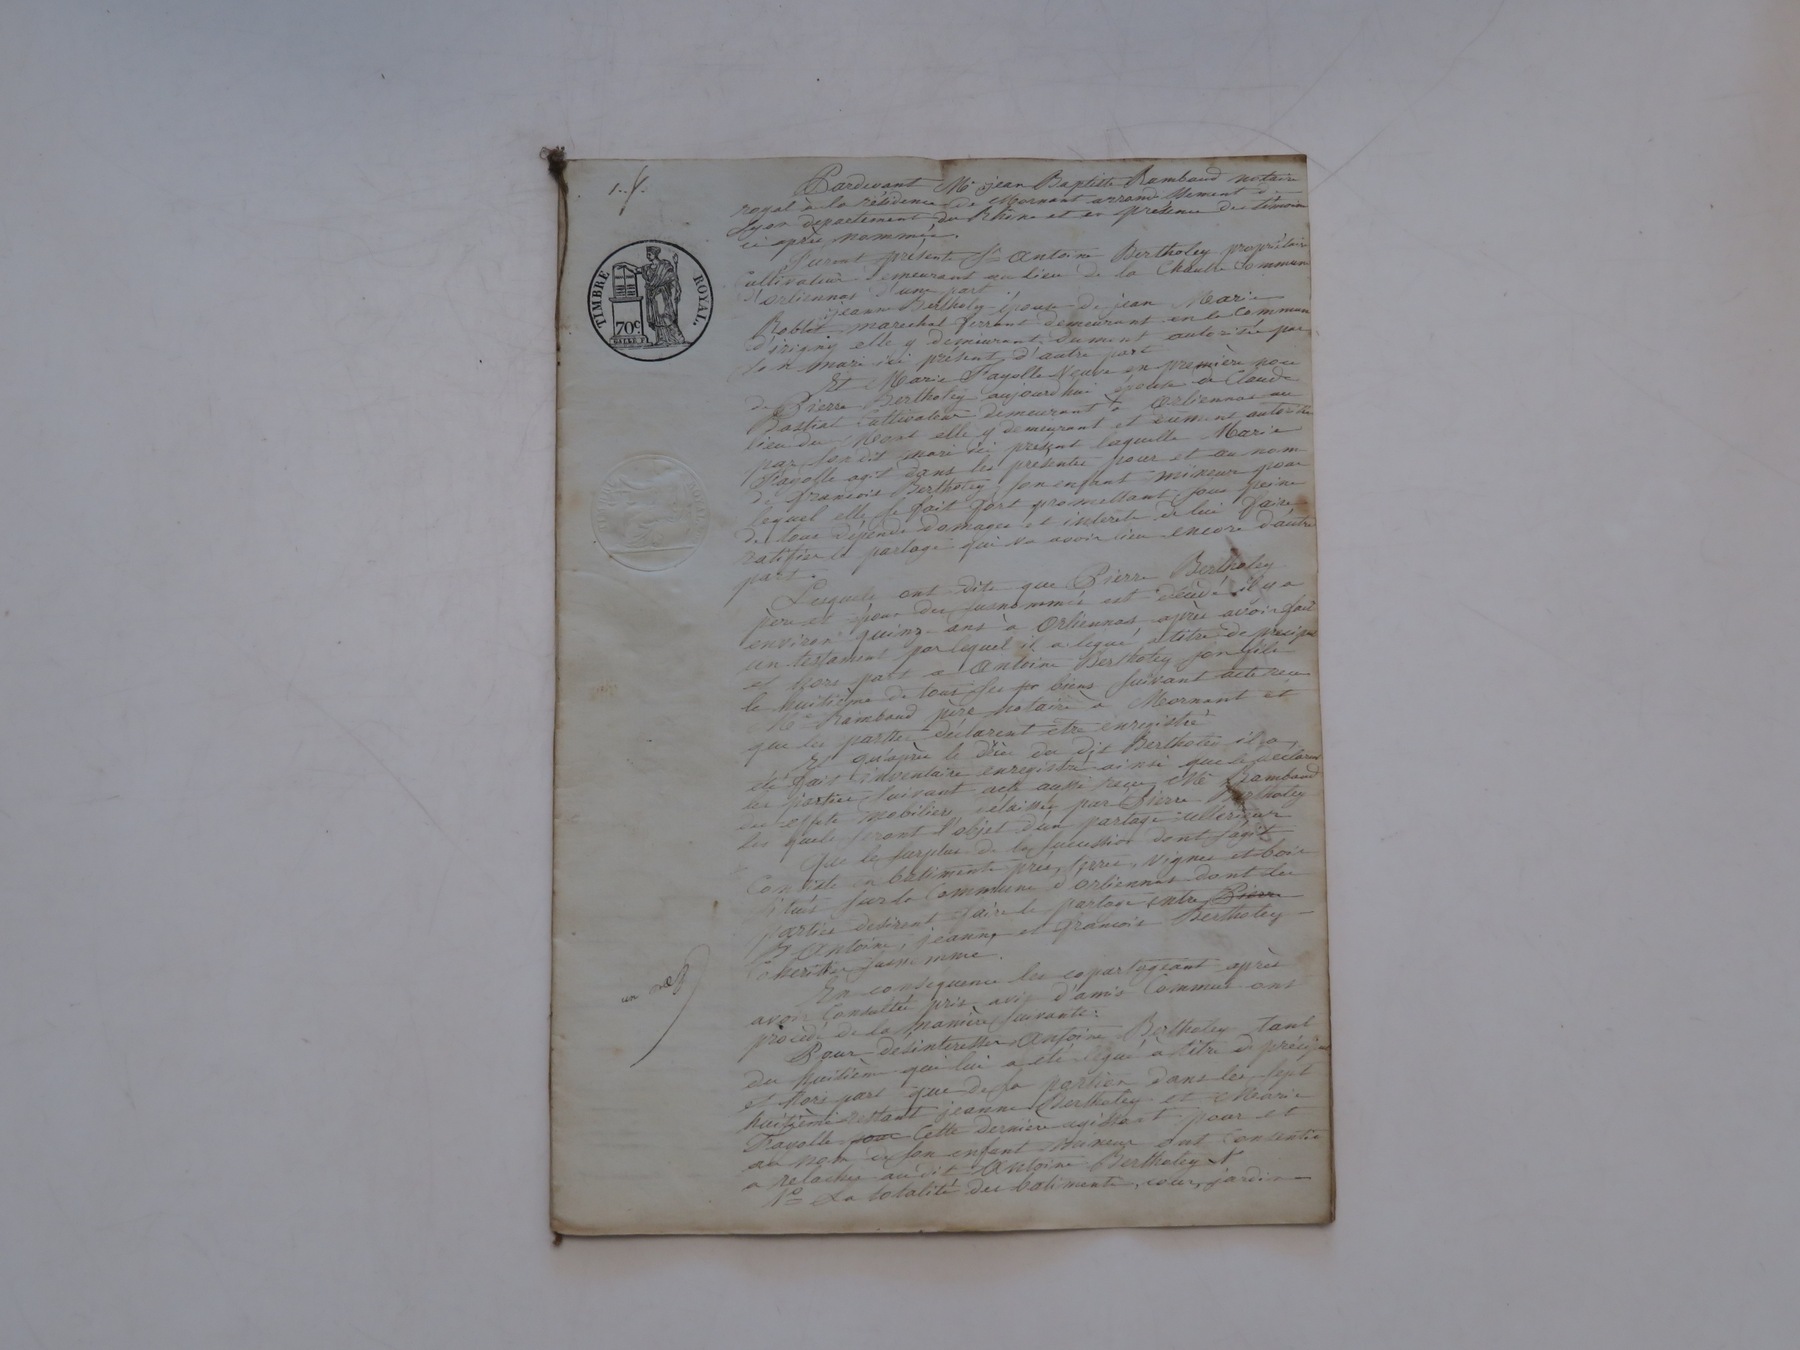 1..
Pardevant Me jean Baptiste Rambaud notaire
royal à la résidence de Mornant arrondissement de
Lyon departement du Rhône et en présence des témoins
ci après nommés.
TIMBRE ROYAL.
70c.
Furent présents Sr Antoine Bertholey propriétaire
Cultivateur demeurant au lieu de la Chaulre Commune
d'Orliennas d'une part
jeanne Bertholey épouse de jean Marie
Roblot marechal ferrant demeurant en la Commune
d'irigny elle y demeurant, dument autorisée par
son mari ici présent, d'autre part
Et Marie Fayolle Veuve en première noce
de Pierre Bertholey aujourdhui épouse de Claude
Bastiat Cultivateur demeurant à Orliennas au
lieu du Mont elle y demeurant et dument autorisée
par son dit mari ici présent laquelle Marie
Fayolle agit dans les présentes pour et au nom
de françois Bertholey son enfant mineur pour
lequel elle se fait fort promettant sous peine
de tous dépends domages et interets de lui faire
ratifier le partage qui va avoir lieu encore d'autre
part.
Lesquels ont dits que Pierre Bertholey
père et époux des susnommés est décédé il y a
environ quinze ans à Orliennas après avoir fait
un testament par lequel il a legué à titre de préciput
et hors part a Antoine Bertholey son fils
le huitième de tous ses biens suivant acte reçu
Me Rambaud père notaire à Mornant et
que les parties déclarent être enregistré
Et qu'après le décès du dit Bertholey il a
été fait inventaire enregistré ainsi que le déclarent
les parties suivant acte aussi reçu Me Rambaud
des effets mobiliers délaissés par Pierre Bertholey
les quels seront l'objet d'un partage ultérieur
Que le surplus de la succession dont s'agit
Consiste en bâtiments prés, terres, vignes et bois
situés sur la Commune d'Orliennas dont les
parties désirent faire le partage entre Pierre
Antoine, jeanne et françois Bertholey
Cohéritiers susnommé.
En conséquence les copartageant après
avoir Consultés pris avis d'amis Communs ont
procédé de la manière suivante:
un mot
Pour désintéresser Antoine Bertholey tant
du huitième qui lui a été legué à titre de préciput
et hors part que de sa portion dans les sept
huitièmes restant jeanne Bertholey et Marie
Fayolle pour Cette dernière agissant pour et
au nom de son enfant mineur ont Consentis
a relacher au dit Antoine Bertholey
1o La totalité des batiments, cour, jardin